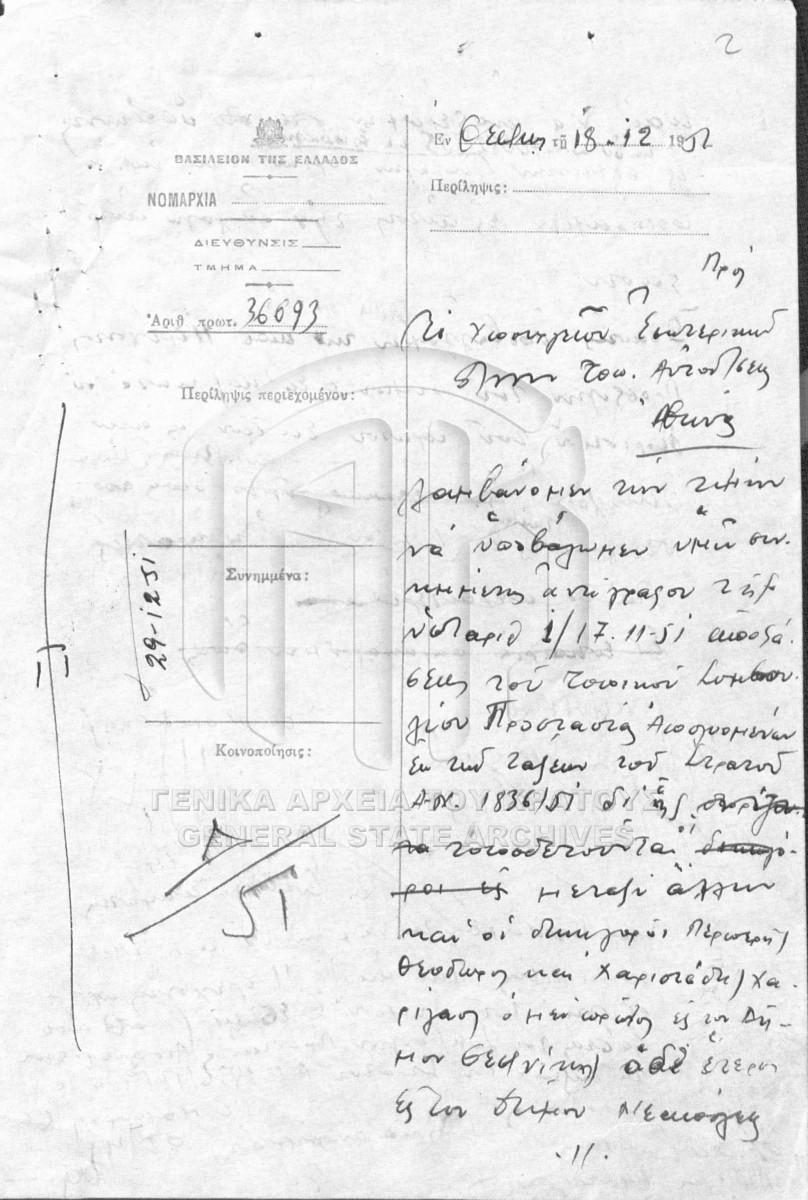 2
ΒΑΣΙΛΕΙΟΝ ΤΗΣ ΕΛΛΑΔΟΣ
ΝΟΜΑΡΧΙΑ
ΔΙΕΥΘΥΝΣΙΣ
ΤΜΗΜΑ
Ἀριθ πρωτ. 36693
Περίληψις περιεχομένου:
Συνημμένα:
29-12 51
Κοινοποίησις:
51
Ἐν Θεσ/νίκῃ τῇ 18-12 1951
Περίληψις:
Πρὸς
Τὸ Ὑπουργεῖον Ἐσωτερικῶν
Δ/νσιν Τοπ. Αὐτοδ/σεως
Ἀθήνας
Λαμβάνομεν τὴν τιμὴν
νὰ ὑποβάλωμεν ὑμῖν συν.
ημμένως ἀντίγραφον τῆς
ὑπ' ἀριθ 1/17-11-51 ἀποφά.
σεως τοῦ Τοπικοῦ Συμβου.
λίου Προστασίας Ἀπολυομένων
ἐκ τῶν τάξεων τοῦ Στρατοῦ
Α.Ν. 1836/51 δι' ἧς
τοποθετοῦνται
μεταξὺ ἄλλων
καὶ οἱ δικηγόροι
Θεόδωρος καὶ Χαρισιάδης Χα.
ρίλαος ὁ μὲν πρῶτος εἰς τὸν Δῆ-
μον Θεσ/νίκης ὁ δὲ ἕτερος
εἰς τὸν Δῆμον Νεαπόλεως
.//.
ΓΕΝΙΚΑ ΑΡΧΕΙΑ ΤΟΥ ΚΡΑΤΟΥΣ
GENERAL STATE ARCHIVES